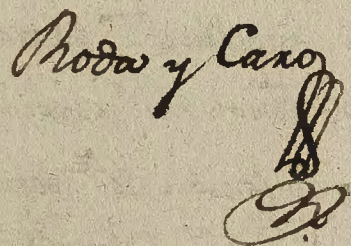 Roda y Caro